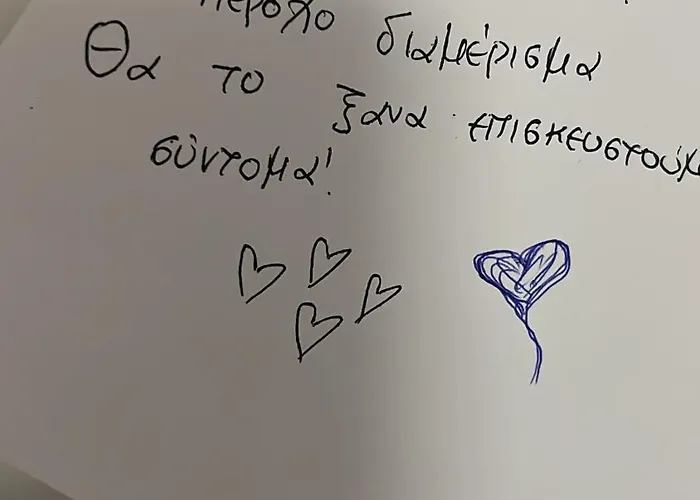 διαμέρισμα
Θα το ξανα επισκευστούμ
σύντομα!